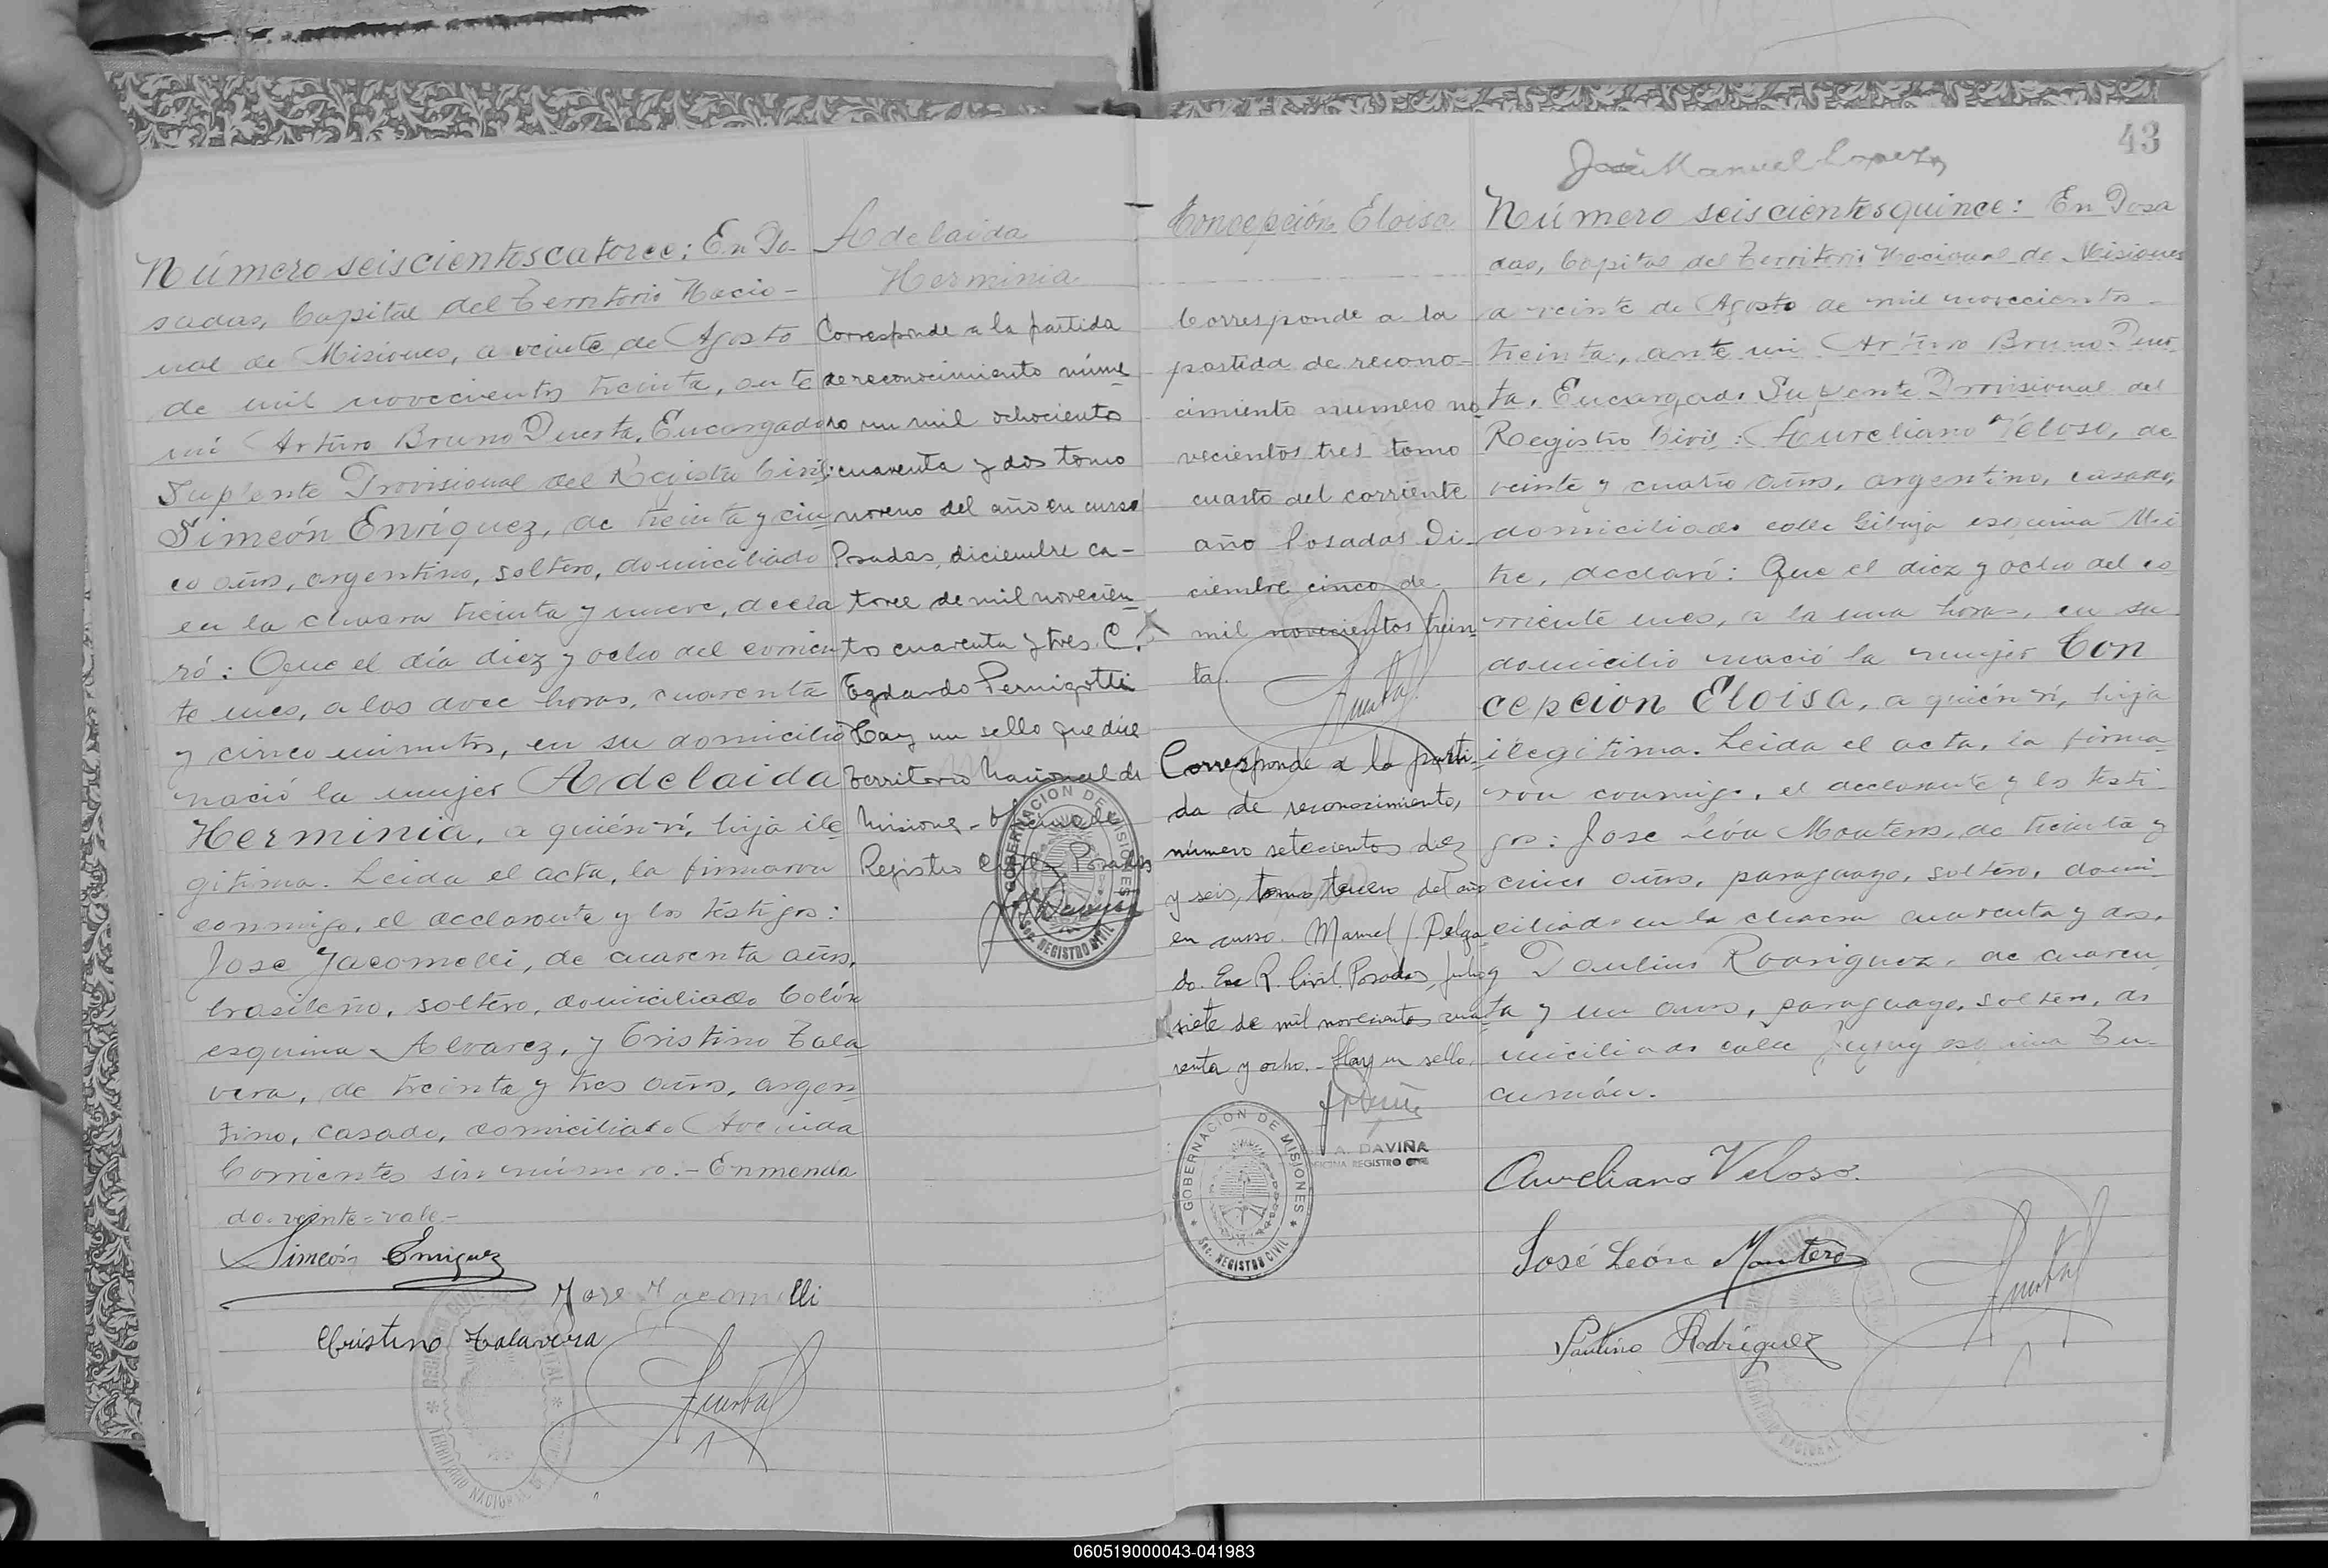 Número seiscientos catorce: En Po-
sadas, Capital del Territorio Nacio-
nal de Misiones, a veinte de Agosto
de mil novecientos treinta, ante
mí Arturo Bruno Puerta, Encargado
Suplente Provisional del Registro Civil:
Simeón Enríquez, de treinta y cin
co años, argentino, soltero, domiciliado
en la chacra treinta y nueve, decla
ró: Que el día diez y ocho del corrien
te mes, a las doce horas, cuarenta
y cinco minutos, en su domicilio
nació la mujer Adelaida
Herminia, a quién ví, hija ile
gitima. Leida el acta, la firmaron
conmigo, el declarante y los testigos:
Jose Jacomelli, de cuarenta años,
brasileño, soltero, domiciliado Colón
esquina Alvarez, y Cristino Tala
vera, de treinta y tres años, argen
tino, casado, domiciliado Avenida
Corrientes sin número.- Enmenda
do=veinte=vale-
Simeón Enriquez
Jose Jacomelli
Cristino Talavera
Adelaida
Herminia
Corresponde a la partida
de reconocimiento núme
ro un mil ochocientos
cuarenta y dos tomo
noveno del año en curso
Posadas, diciembre ca-
torce de mil novecien
tos cuarenta y tres. C.
Egduardo Pernigotti
Hay un sello que dice
Territorio Nacional de
Misiones - Oficina de
Registro Civil Posadas
GOBERNACION DE MISIONES
Sec. REGISTRO CIVIL
43
José Manuel Lopez
Concepción Eloisa
Corresponde a la
partida de recono-
cimiento numero no
vecientos tres tomo
cuarto del corriente
año Posadas Di-
ciembre cinco de
mil novecientos trein
ta.
Corresponde a la parti-
da de reconocimiento,
número setecientos diez
y seis, tomo tercero del año
en curso. Manuel J. Delga
do. Enc R. Civil. Posadas, julio
siete de mil novecientos cua
renta y ocho.- Hay un sello.
A. DAVIÑA
OFICINA REGISTRO CIVIL
GOBERNACION DE MISIONES
Sec. REGISTRO CIVIL
Número seiscientos quince: En Posa
das, Capital del Territorio Nacional de Misiones
a veinte de Agosto de mil novecientos
treinta, ante mí Arturo Bruno Puer
ta, Encargado Suplente Provisional del
Registro Civil: Aureliano Veloso, de
veinte y cuatro años, argentino, casado,
domiciliado calle Gibaja esquina Mi
tre, declaró: Que el diez y ocho del co
rriente mes, a la una horas, en su
domicilio nació la mujer Con
cepcion Eloisa, a quién ví, hija
ilegitima. Leida el acta, la firma-
ron conmigo, el declarante y los testi-
gos: Jose León Montero, de treinta y
cinco años, paraguayo, soltero, domi-
ciliado en la chacra cuarenta y dos,
y Paulino Rodriguez, de cuaren
ta y un anos, paraguayo, soltero, do
miciliado calle Jujuy esquina Tu-
cumán.
Aureliano Veloso.
José León Montero
Paulino Rodríguez
060519000043-041983